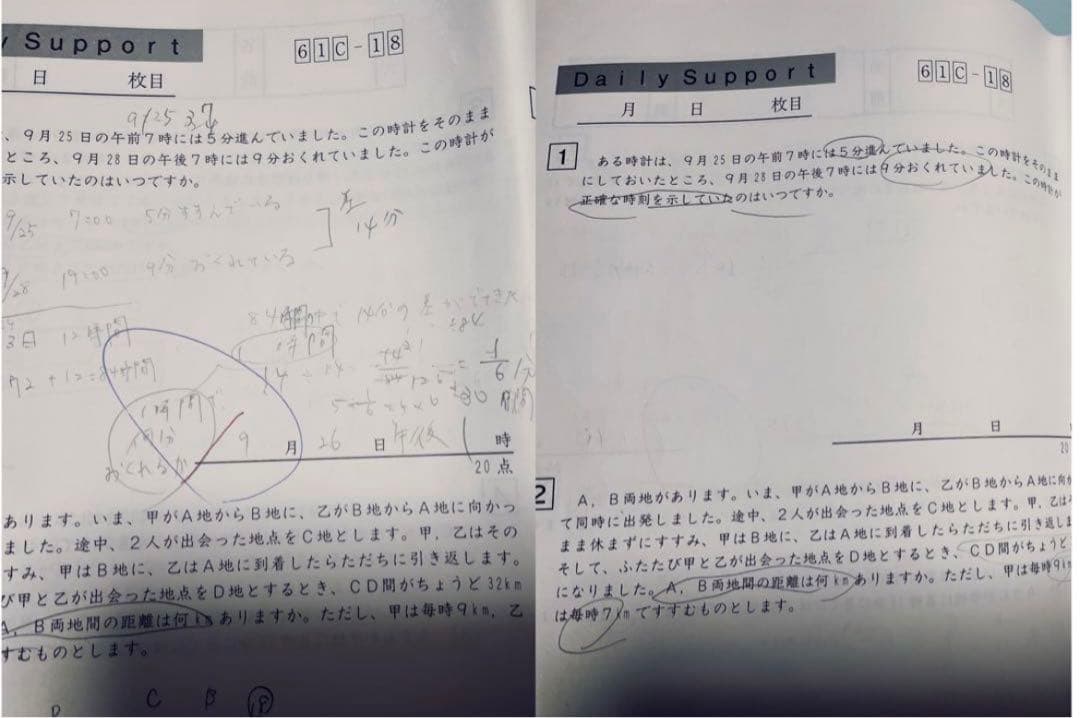 y Support
61C-18
日 枚目
9/25 3,4
、9月25日の午前7時には5分進んでいました。この時計をそのまま
ところ、9月28日の午後7時には9分おくれていました。この時計が
示していたのはいつですか。
9/25 7:00 5分すすんでいる
差
14分
9/28 19:00 9分おくれている
84時間中で14分の差ができた
3日 12時間
1時間
72+12=84時間
1/6
1時間で
何分
おくれるか
9月26日午後1時
20点
あります。いま、甲がA地からB地に、乙がB地からA地に向かっ
ました。途中、2人が出会った地点をC地とします。甲,乙はその
すみ、甲はB地に、乙はA地に到着したらただちに引き返します。
び甲と乙が出会った地点をD地とするとき、CD間がちょうど32km
A,B両地間の距離は何kmありますか。ただし、甲は毎時9km,乙
すむものとします。
D C B
Daily Support
61C-18
月 日 枚目
1 ある時計は、9月25日の午前7時には5分進んでいました。この時計をそのまま
にしておいたところ、9月28日の午後7時には9分おくれていました。この時計が
正確な時刻を示していたのはいつですか。
月 日
20
2 A,B両地があります。いま、甲がA地からB地に、乙がB地からA地に向か
て同時に出発しました。途中、2人が出会った地点をC地とします。甲,乙はそ
まま休まずにすすみ、甲はB地に、乙はA地に到着したらただちに引き返しま
そして、ふたたび甲と乙が出会った地点をD地とするとき、CD間がちょうど
になりました。A,B両地間の距離は何kmありますか。ただし、甲は毎時9km
は毎時7kmですすむものとします。